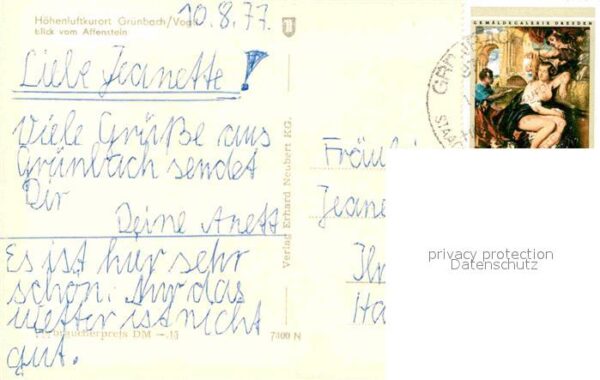 10.8.77.
Höhenluftkurort Grünbach/Vogtl.
Blick vom Affenstein
Liebe Jeanette!
Viele Grüße aus
Grünbach sendet
Dir
Deine Anett
Es ist hier sehr
schön. Nur das
Wetter ist nicht
gut.
Verbraucherpreis DM -.15
7400 N
Verlag Erhard Neubert KG.
GEMÄLDEGALERIE DRESDEN
Fräu
Jeane
Ha
privacy protection
Datenschutz